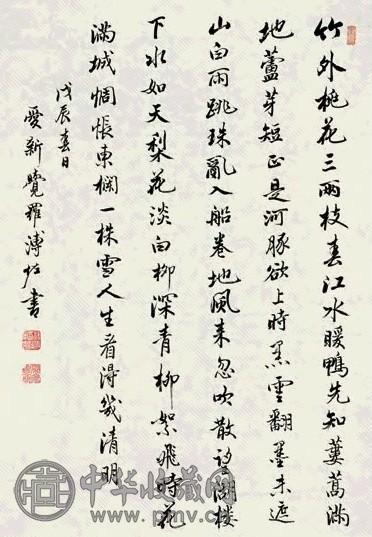 竹外桃花三兩枝春江水暖鴨先知蔞蒿滿
地蘆芽短正是河豚欲上時黑雲翻墨未遮
山白雨跳珠亂入船卷地風来忽吹散望湖樓
下水如天梨花淡白柳深青柳絮飛時花
滿城惆悵東欄一株雪人生看得幾清明
戊辰春日
愛新覺羅溥佐書
中华收藏网